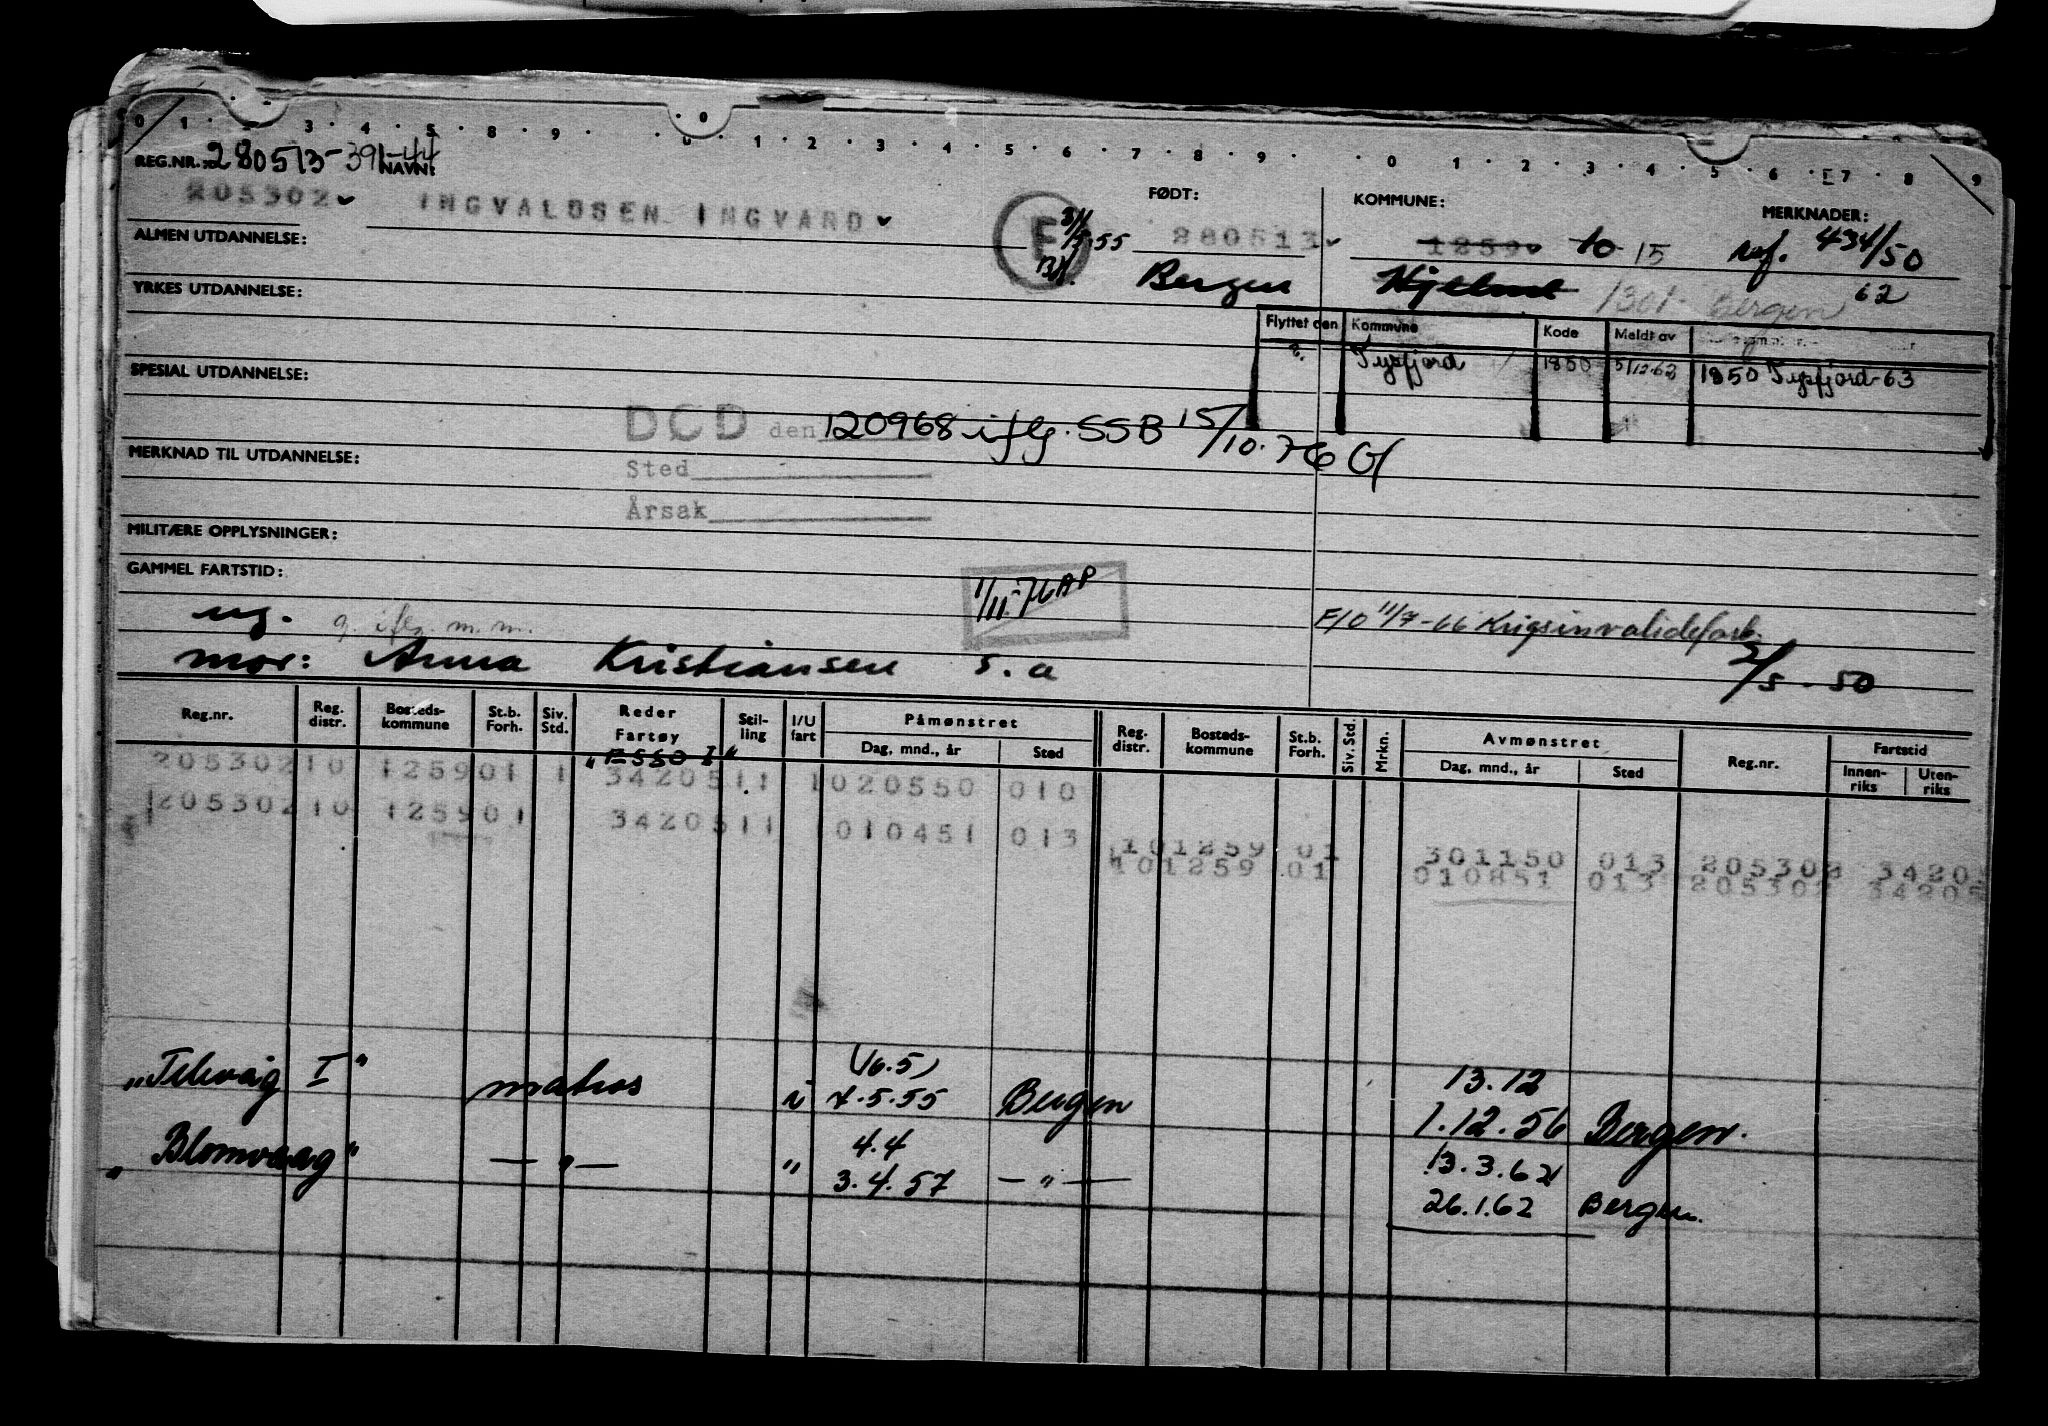 0 1 2 3 4 5 8 9 0 1 2 3 4 5 6 7 8 9 0 1 2 3 4 5 6 7 8 9
0
REG.NR.: 280513-391-44 NAVN:
205302 INGVALDSEN INGVARD E 31/5 55 FØDT: 280513 Bergen
KOMMUNE: 1259 to 15 1301 Bergen
MERKNADER: ref. 434/50 62
ALMEN UTDANNELSE:
YRKES UTDANNELSE:
Flyttet den Kommune Kode Meldt av
?. Tysfjord 1850 5/12-62 1850 Tysfjord-63
SPESIAL UTDANNELSE:
DØD den 120968 iflg. SSB 15/10.76 Of
MERKNAD TIL UTDANNELSE:
Sted
Årsak
MILITÆRE OPPLYSNINGER:
GAMMEL FARTSTID:
1/11-76 AP
ug. g. iflg. m.m.
F/O 11/7-66 Krigsinvalidefork.
mor: Anna Kristiansen s.a 2/5-50
Reg.nr. Reg. distr. Bosteds-kommune St.b. Forh. Siv. Std. Reder Fartøy Stil-ling I/U fart Påmønstret Dag, mnd., år Sted Reg. distr. Bosteds-kommune St.b. Forh. Siv. Std. Mrkn. Avmønstret Dag, mnd., år Sted Reg.nr. Fartstid Innen-riks Uten-riks
205302 10 1259 01 1 34205 11 1 020550 010
205302 10 1259 01 34205 11 1 010451 013
10 1259 01 301150 013 205302 3420
10 1259 01 010851 013 205302 34205
(16.5) 13.12
„Telavåg I" matros i 7.5.55 Bergen 1.12.56 Bergen.
4.4 13.3.62
„Blomvaag" — „ — „ 3.4.57 — „ — 26.1.62 Bergen.